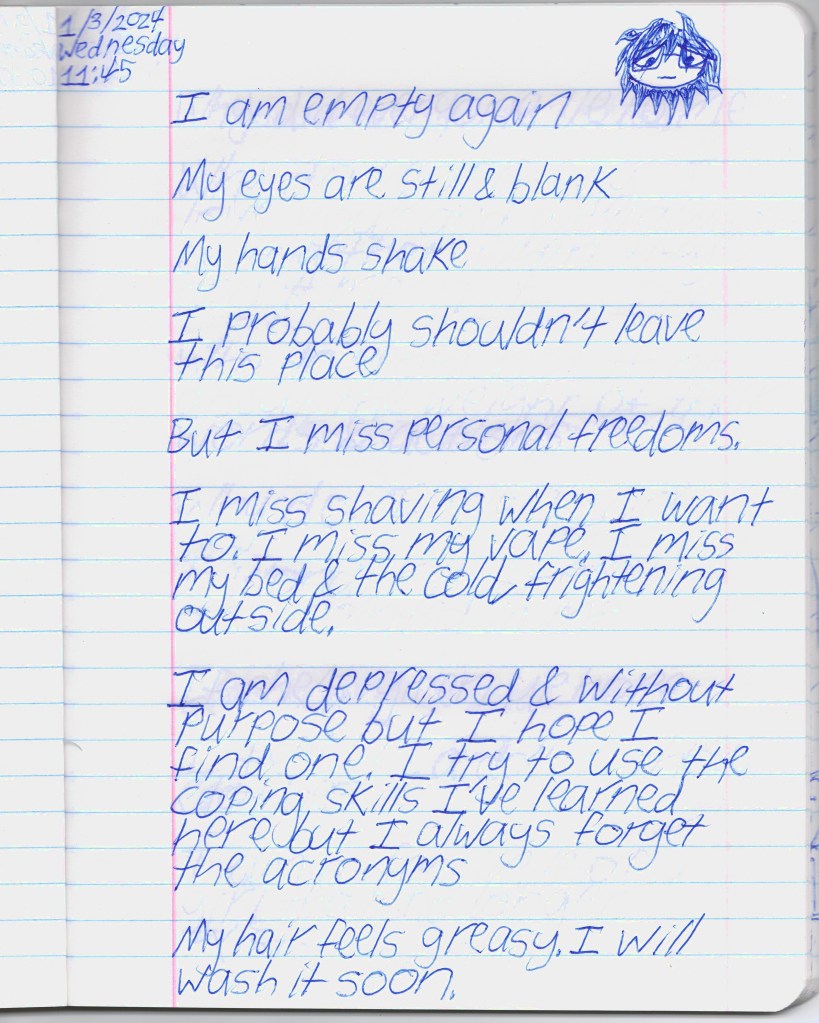 1/3/2024
Wednesday
11:45
I am empty again
My eyes are still & blank
My hands shake
I probably shouldn't leave
this place
But I miss personal freedoms.
I miss shaving when I want
to. I miss my vape. I miss
my bed & the cold, frightening
outside.
I am depressed & without
purpose but I hope I
find one. I try to use the
coping skills I've learned
here but I always forget
the acronyms
My hair feels greasy. I will
wash it soon.